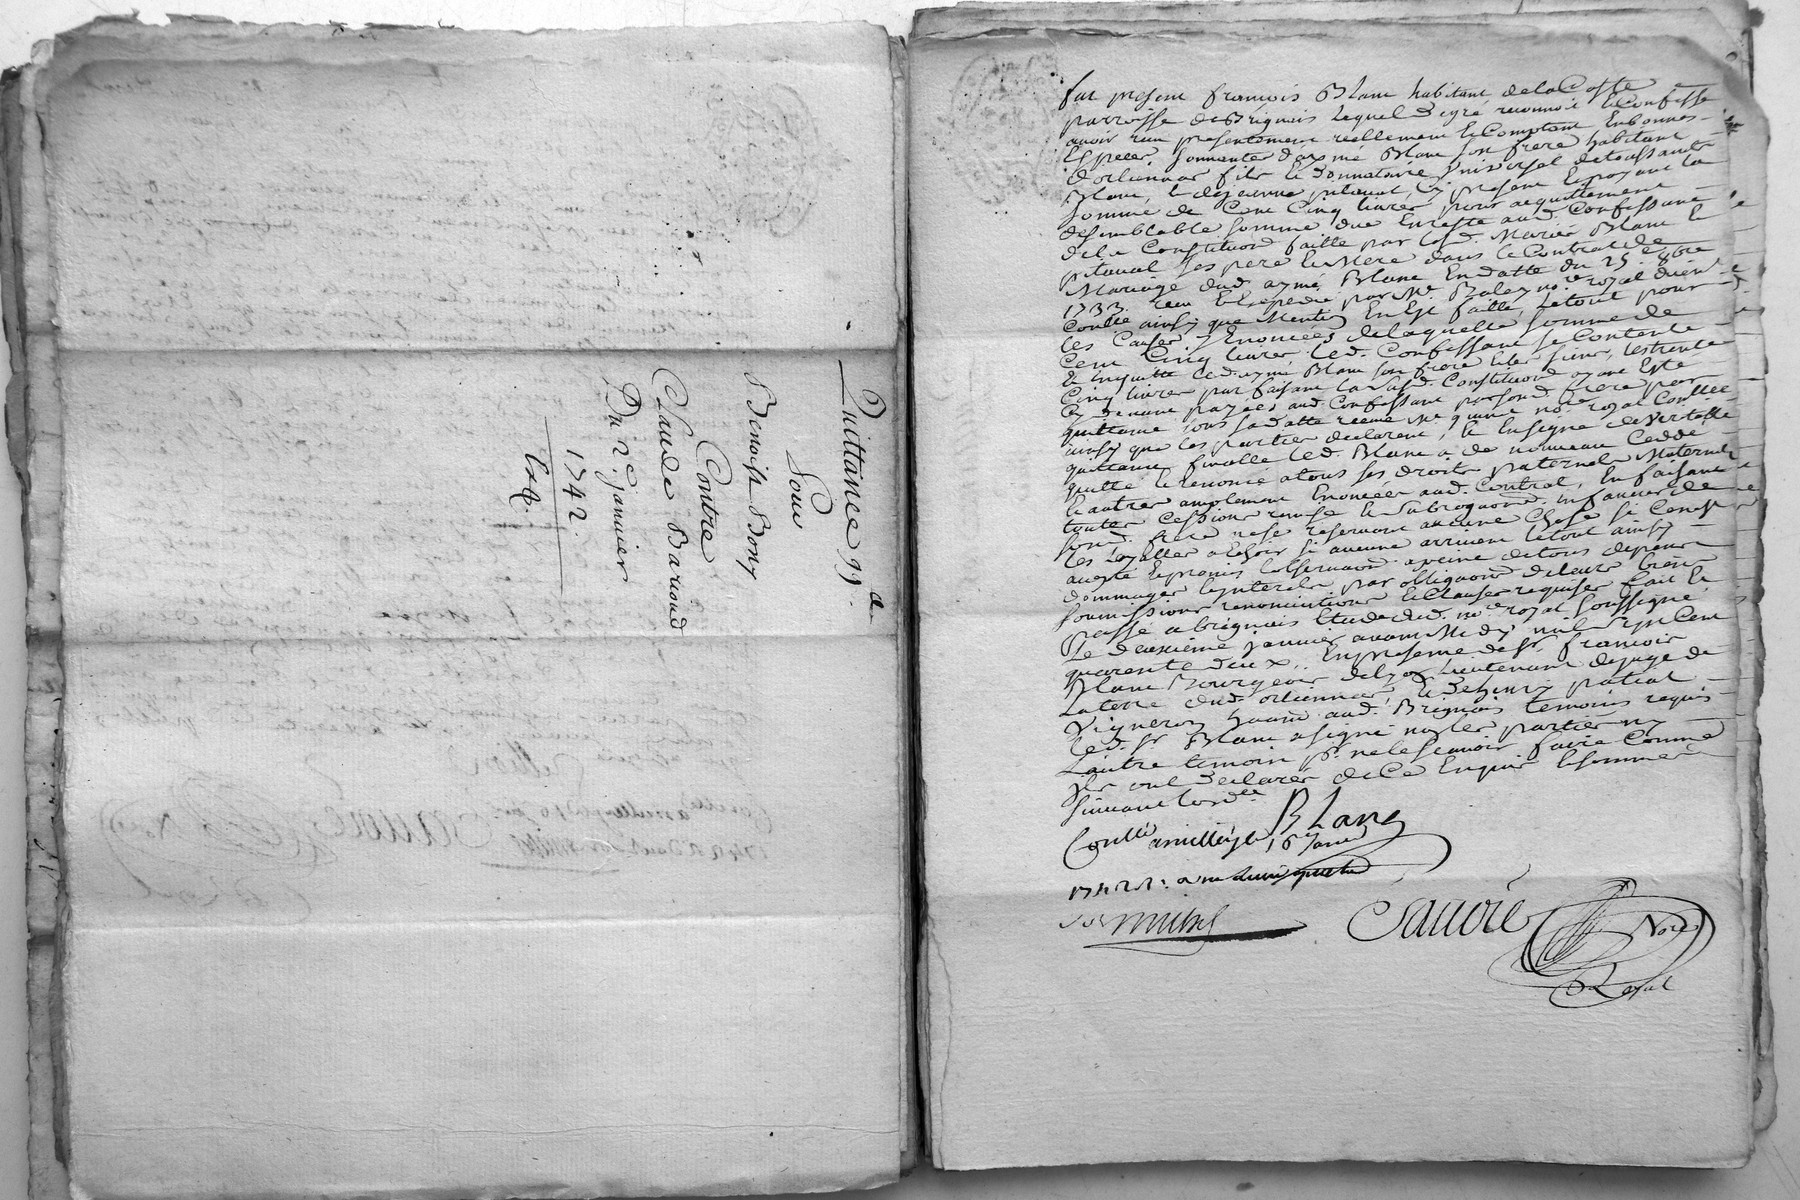 Quittance 99.a
Pour
Benoist Bony
Contre
Claude Barioud
Du 2.e janvier
1742.
Exp.
fut present françois Blanc habitant de la Coste
parroisse de Brignais lequel de gré reconnoit & Confesse
avoir reçu presentement reellement & Comptant En bonnes
Especes sonnantes d'aymé Blanc son frere habitant
d'orliennas fils & donnataire universel de toussaint
Blanc, & de jeanne pitaval, icy present & payant la
somme de Cent Cinq livres pour acquittement
de semblable somme due En reste aud. Confessant
de la Constitution faitte par lesd. Mariés Blanc &
pitaval ses pere & Mere dans le Contrat de
Mariage dud. aymé Blanc En datte du 25.e 8bre
1733. reçu & Expedié par Me. Baley no.re royal duem.t
Conllé ainsy que Mention En Est faitte, le tout pour
les Causes y Enoncées de laquelle somme de
Cent Cinq livres led. Confessant se Contente
& En quitte led. aymé Blanc son frere & les siens, les trente
Cinq livres parfaisant la susd. Constitution ayant Esté
cy devant payées aud. Confessant par sond. frere par
quittance sous sa datte reçue Me. no.re royal Conllée
ainsy que les parties declarent, & En signe de veritable
quittance finalle led. Blanc a de nouveau Cedé
quitté & renoncé a tous ses droits paternels Maternels
& autres amplement Enoncées aud. Contrat, En faisant
toutes Cessions remise & subrogations En faveur de
sond. frere ne se reservant aucune Chose si Ce n'est
les Loyalles a Echoir si aucune arrivent le tout ainsy
accepté & promis & observation a peine de tous depens
dommages & interets par obligation de leurs biens
soumissions renonciations & Clauses requises fait &
passé a brignais Etude dud. no.re royal soussigné
Le deuxieme janvier avant Midy mil sept Cent
quarente deux.. En presence de Sr. françois
Blanc Bourgeois de lyon Lieutenant de juge de
La terre dud. orliennas, & de patial
Vigneron hab.t aud. Brignais temoins requis
led. Sr. Blanc a signé non les parties ny
L'autre temoin p.r ne le sçavoir faire Comme
ils ont declarés de Ce Enquis & sommés
suivant l'ord.ce
Blanc
Conllé a milleyle 16 janv
1742 R.
Sauoré Nore
Royal